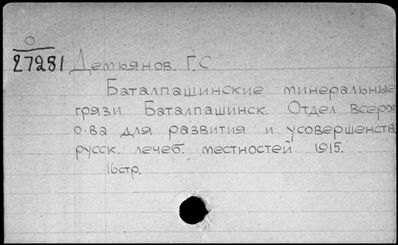 О
27281 Демьянов, Г.С.
Баталпашинские минеральные
грязи Баталпашинск. Отдел всерос
о-ва для развития и усовершенств
русск. лечеб. местностей 1915.
16стр.